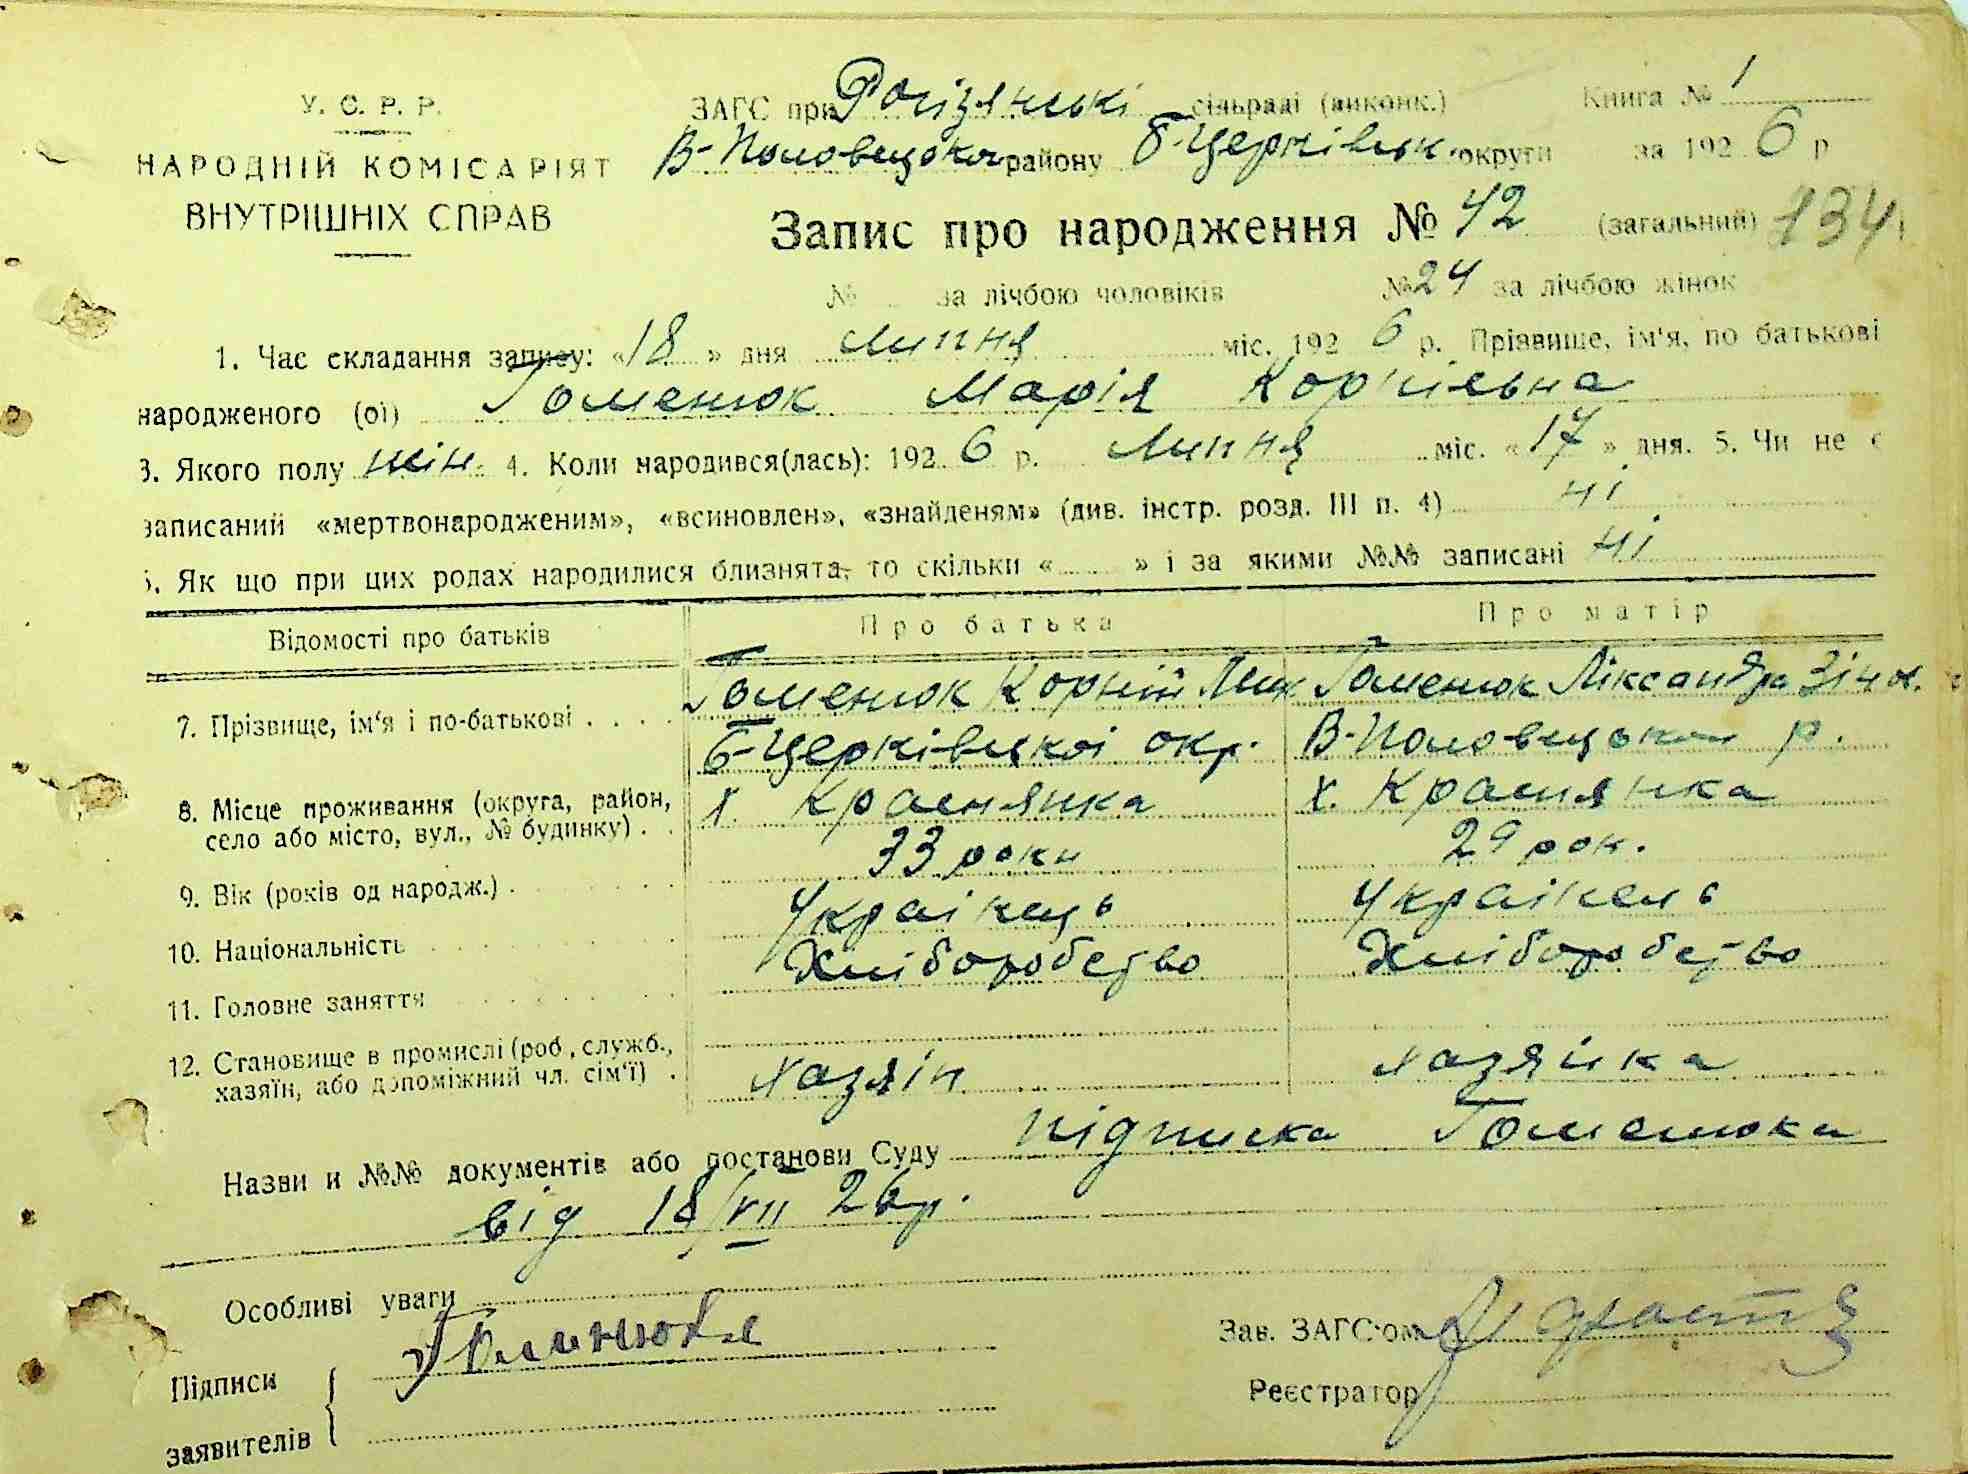 У. С. Р. Р.
НАРОДНІЙ КОМІСАРІЯТ
ВНУТРІШНІХ СПРАВ
ЗАГС при сільраді (виконк.) Книга № 1
В-Половецького району Б-Церківськ. округи за 1926 р
Запис про народження № 42 (загальний) 134
№ за лічбою чоловіків № 24 за лічбою жінок
1. Час складання запису: «18» дня липня міс. 1926 р. Прізвище, ім'я, по батькові
народженого (ої) Гоменюк Марія Корніївна
3. Якого полу жін. 4. Коли народився(лась): 1926 р. липня міс. «17» дня. 5. Чи не є
записаний «мертвонародженим», «всиновлен», «знайденям» (див. інстр. розд. III п. 4) ні
6. Як що при цих родах народилися близнята, то скільки « » і за якими №№ записані ні
Відомості про батьків Про батька Про матір
7. Прізвище, ім'я і по-батькові Гоменюк Корній Гоменюк Ліксандра Зінов.
Б-Церківцкої окр. В-Половецького р.
8. Місце проживання (округа, район, х. Краснянка х. Краснянка
село або місто, вул., № будинку)
9. Вік (років од народж.) 33 роки 29 рок.
10. Національність Українець Українець
11. Головне заняття Хліборобство Хліборобство
12. Становище в промислі (роб., служб., хазяїн, або допоміжний чл. сім'ї) хазяін хазяйка
Назви и №№ документів або постанови Суду підписка Гоменюка
від 18/VII 26 р.
Особливі уваги
Підписи Гоменюк
заявителів
Зав. ЗАГС'ом
Реєстратор